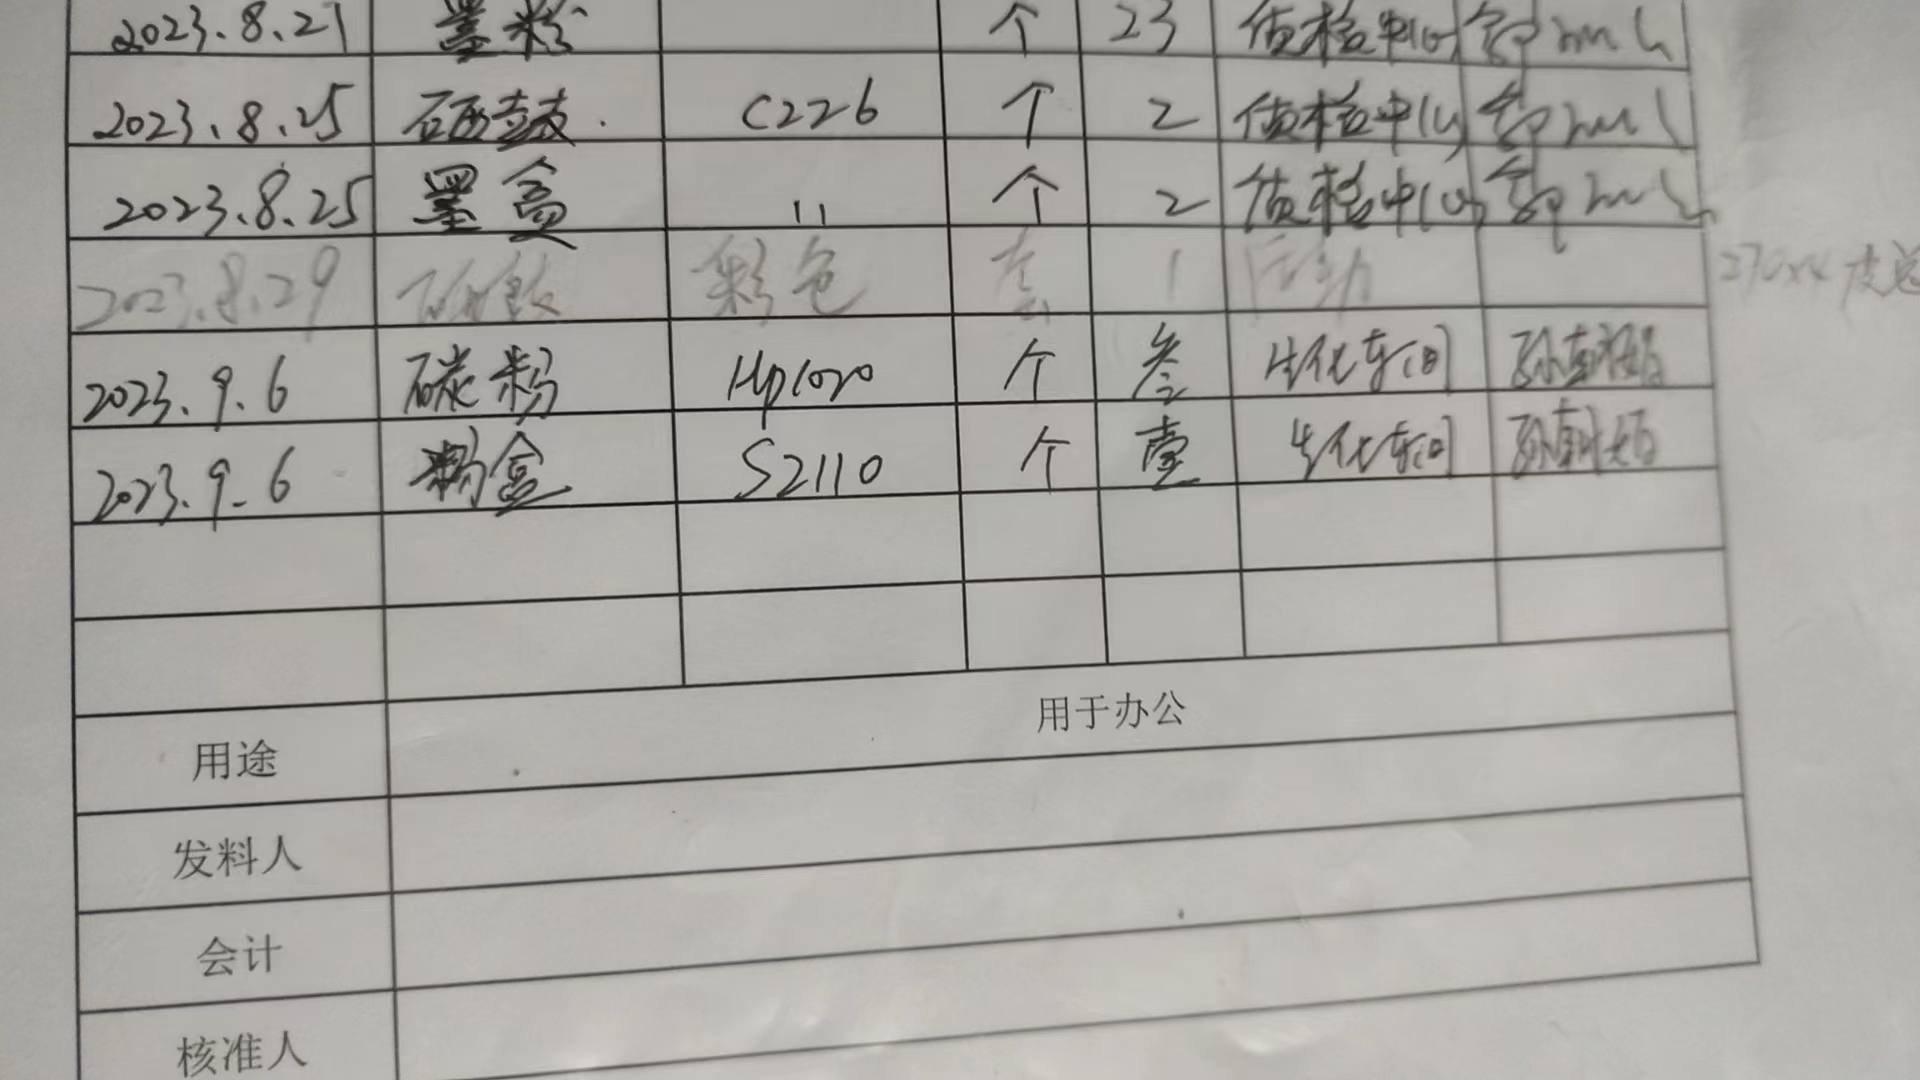 2023.8.21 墨粉 个 23 质检中心
2023.8.25 硒鼓. C226 个 2 质检中心
2023.8.25 墨盒 11 个 2 质检中心
2023.8.29 彩色 套 1
2023.9.6 碳粉 Hp1020 个 叁 生化车间
2023.9.6 粉盒 S2110 个 壹 生化车间
用途 用于办公
发料人
会计
核准人